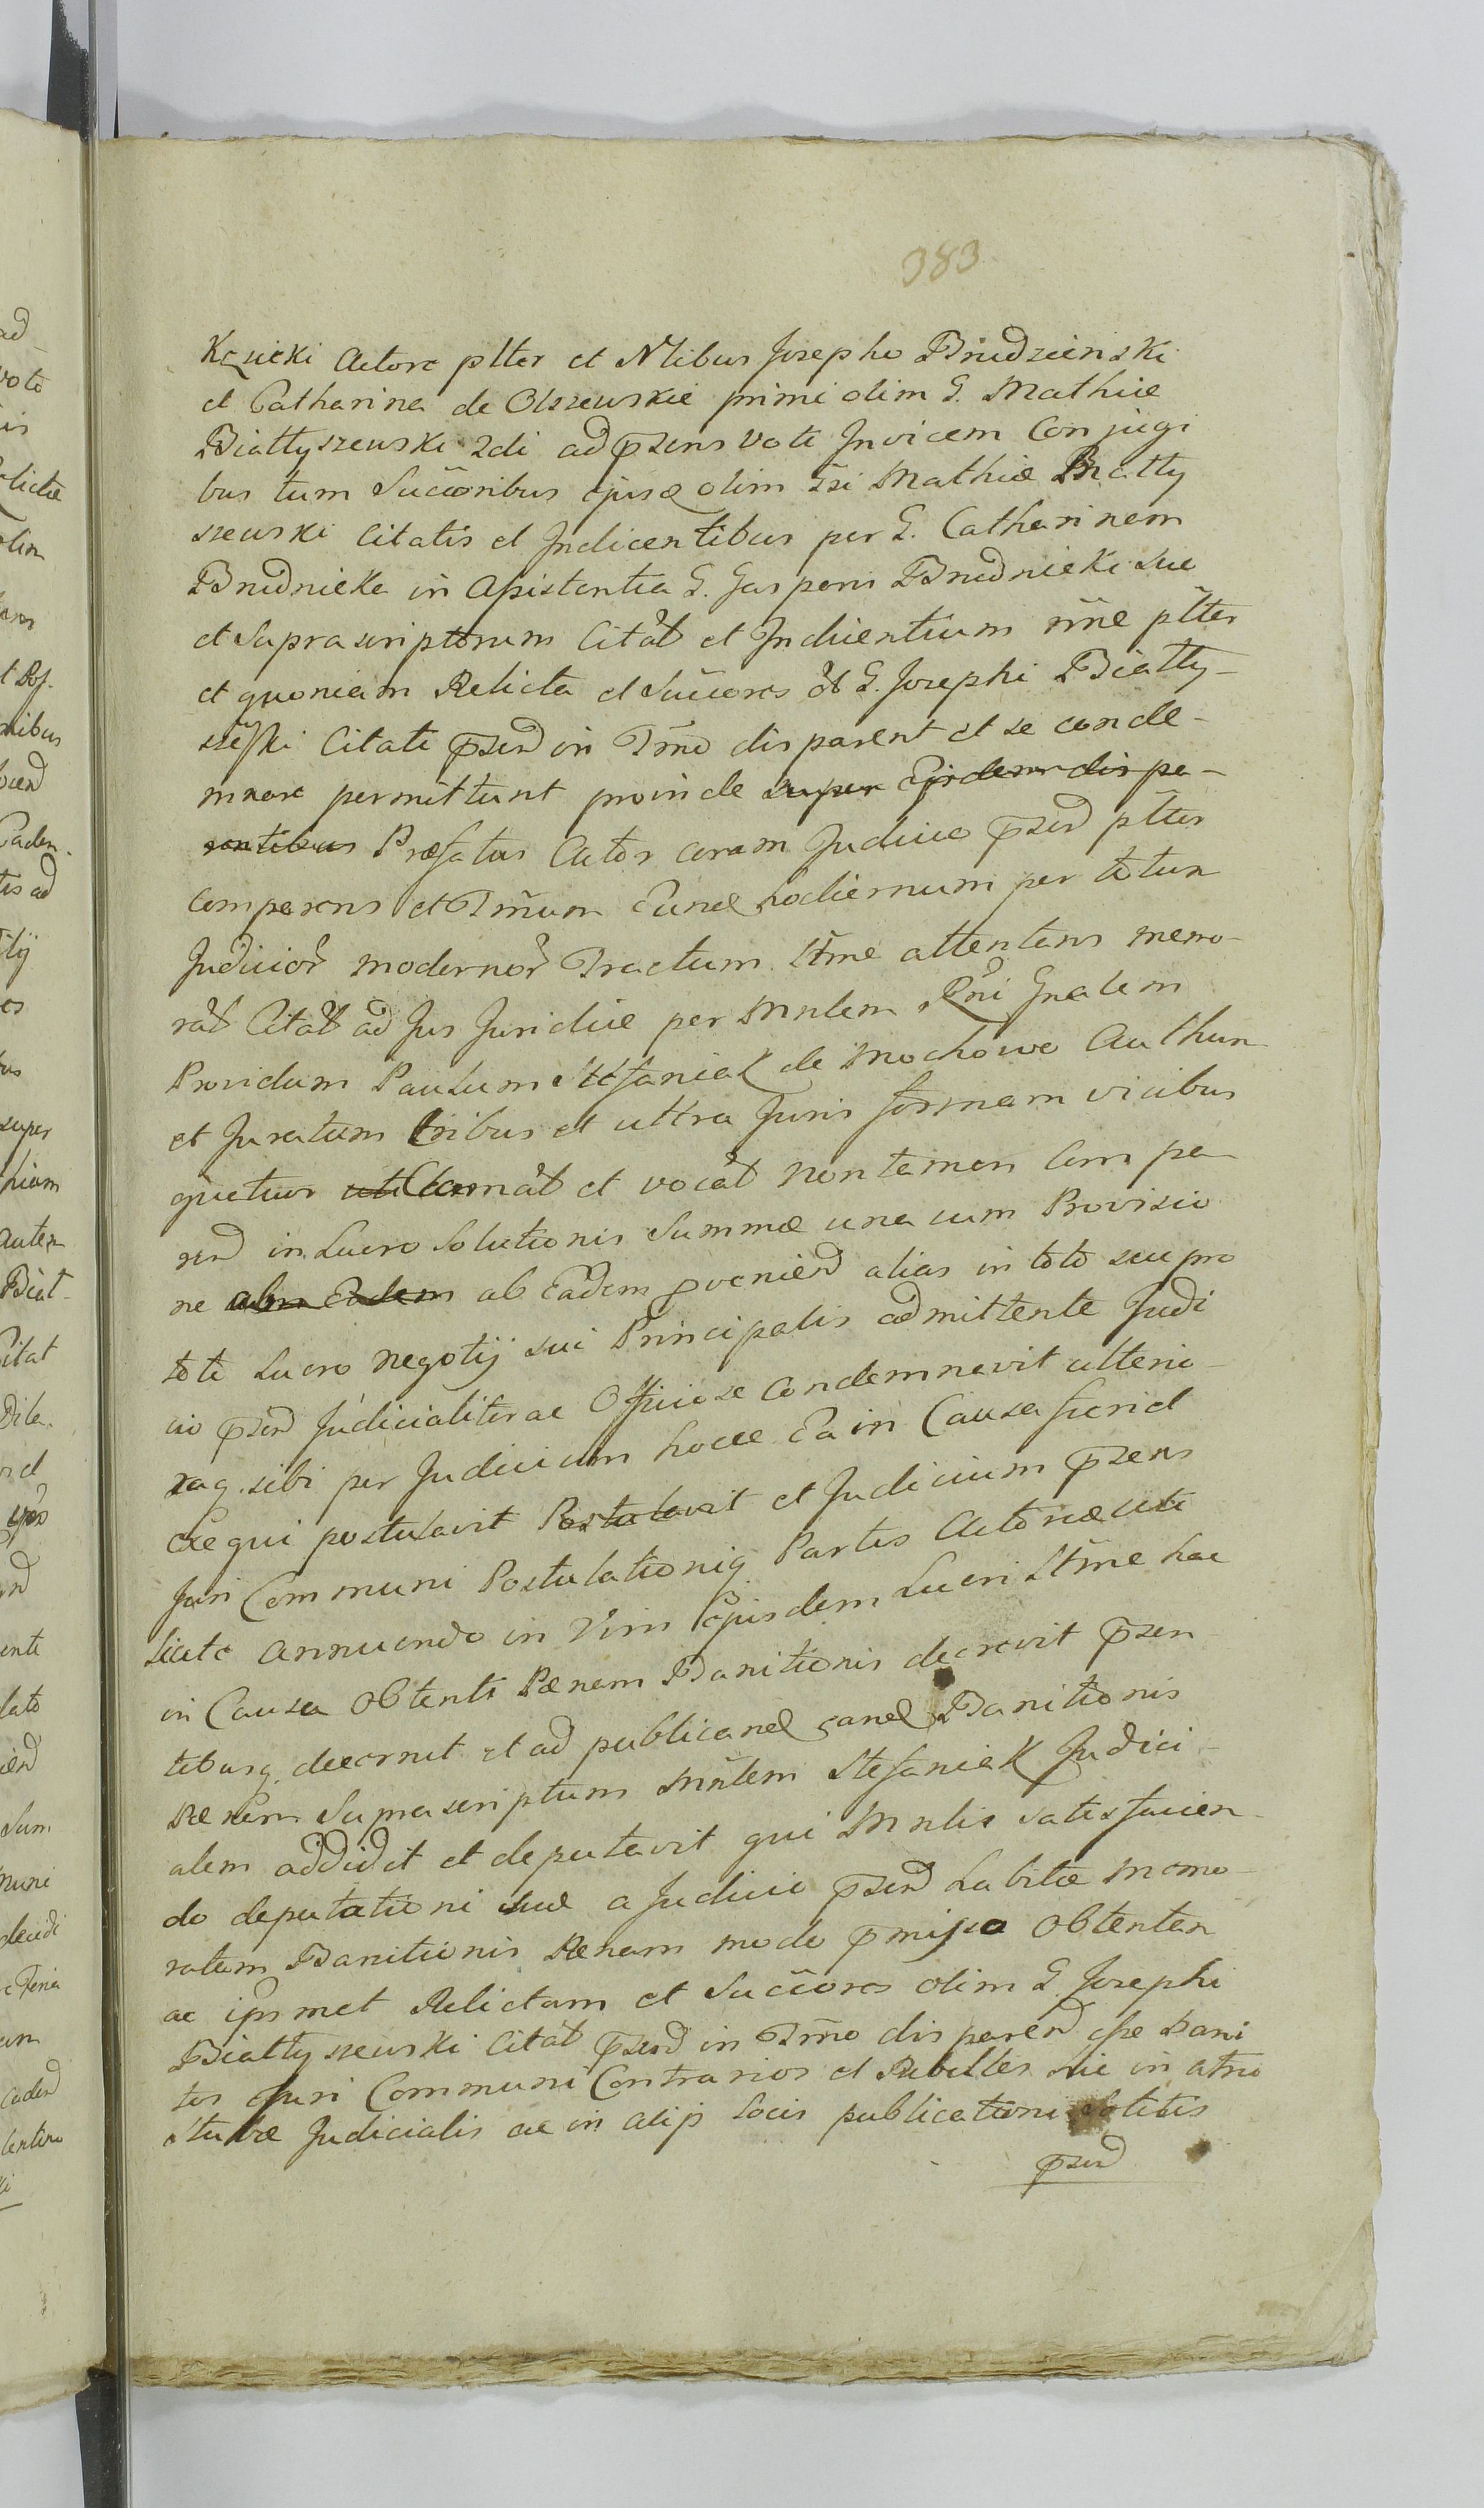 383
Kczicki Actore pltter et Nlibus Josepho Brudzienski
et Catharina de Olszewskie primi olim G. Mathiæ
Biattyszewski 2di ad p̄sens voti Invicem Conjugi
bus tum Succōribus ejusq olim Mathiæ Biatty
szewski Citatis et Indicentibus per G. Catharinam
Brudnicka in Assistentia G. Gasparis Brudnicki sue
et suprascriptorum Citāt et Inducentium nīne pltter
et quoniam Relicta et Succōres G. Josephi Biatty-
szewski Citati p̄send in Tm̄o disparent et se conde-
mnare permittunt proinde super Ejsdem dispa-
rentibus Præfatus Actor coram Judicio p̄send pltter
Comparens et Tm̄um Eund hodiernum per totum
Judicior modernor Tractum Ltm̄e attentans memo-
rāt Citāt ad Jus Juridice per Mnlem Rni Gnalem
Providum Paulum Stefaniak de Mochowo Authen
et Juratum tribus et ultra Juris formam vicibus
quetuor uti Clamāt et vocāt non tamen Compa
rend in Lucro Solutionis Summæ una cum Provisio
ne ab Eadem ab Eadem pveniend alias in toto seu pro
toto Lucro negotij sui Principalis admittente Judi
cio p̄send Judicialiter ac Officiose Condemnavit ulterio-
raq. sibi per Judicium hocce Ea in Causa fieri et
exequi postulavit Postulavit et Judicium p̄sens
Juri Communi Postulationiq Partis Actoreæ uti
licite annuendo in Vim Ejusdem Lucri Ltm̄e hac
in Causa Obtenti Pænam Banitionis decrevit p̄sen
tibusq. decernit et ad publicand eand Banitionis
Pænam Suprascriptum Mnlem Stefaniak Judici-
alem addidit et deputavit qui Mnlis satisfacien-
do deputationi suæ a Judicio p̄send habitæ memo-
ratam Banitionis Pænam modo p̄misso Obtentam
ac ipsmet Relictam et Succōres olim G. Josephi
Biattyszewski Citāt p̄send in Tm̄o disparend esse Bani
tos Juri Communi Contrarios et Rebelles sui in atrio
Stubæ Judicialis ac in alijs Locis publicationi Solitis
p̄send